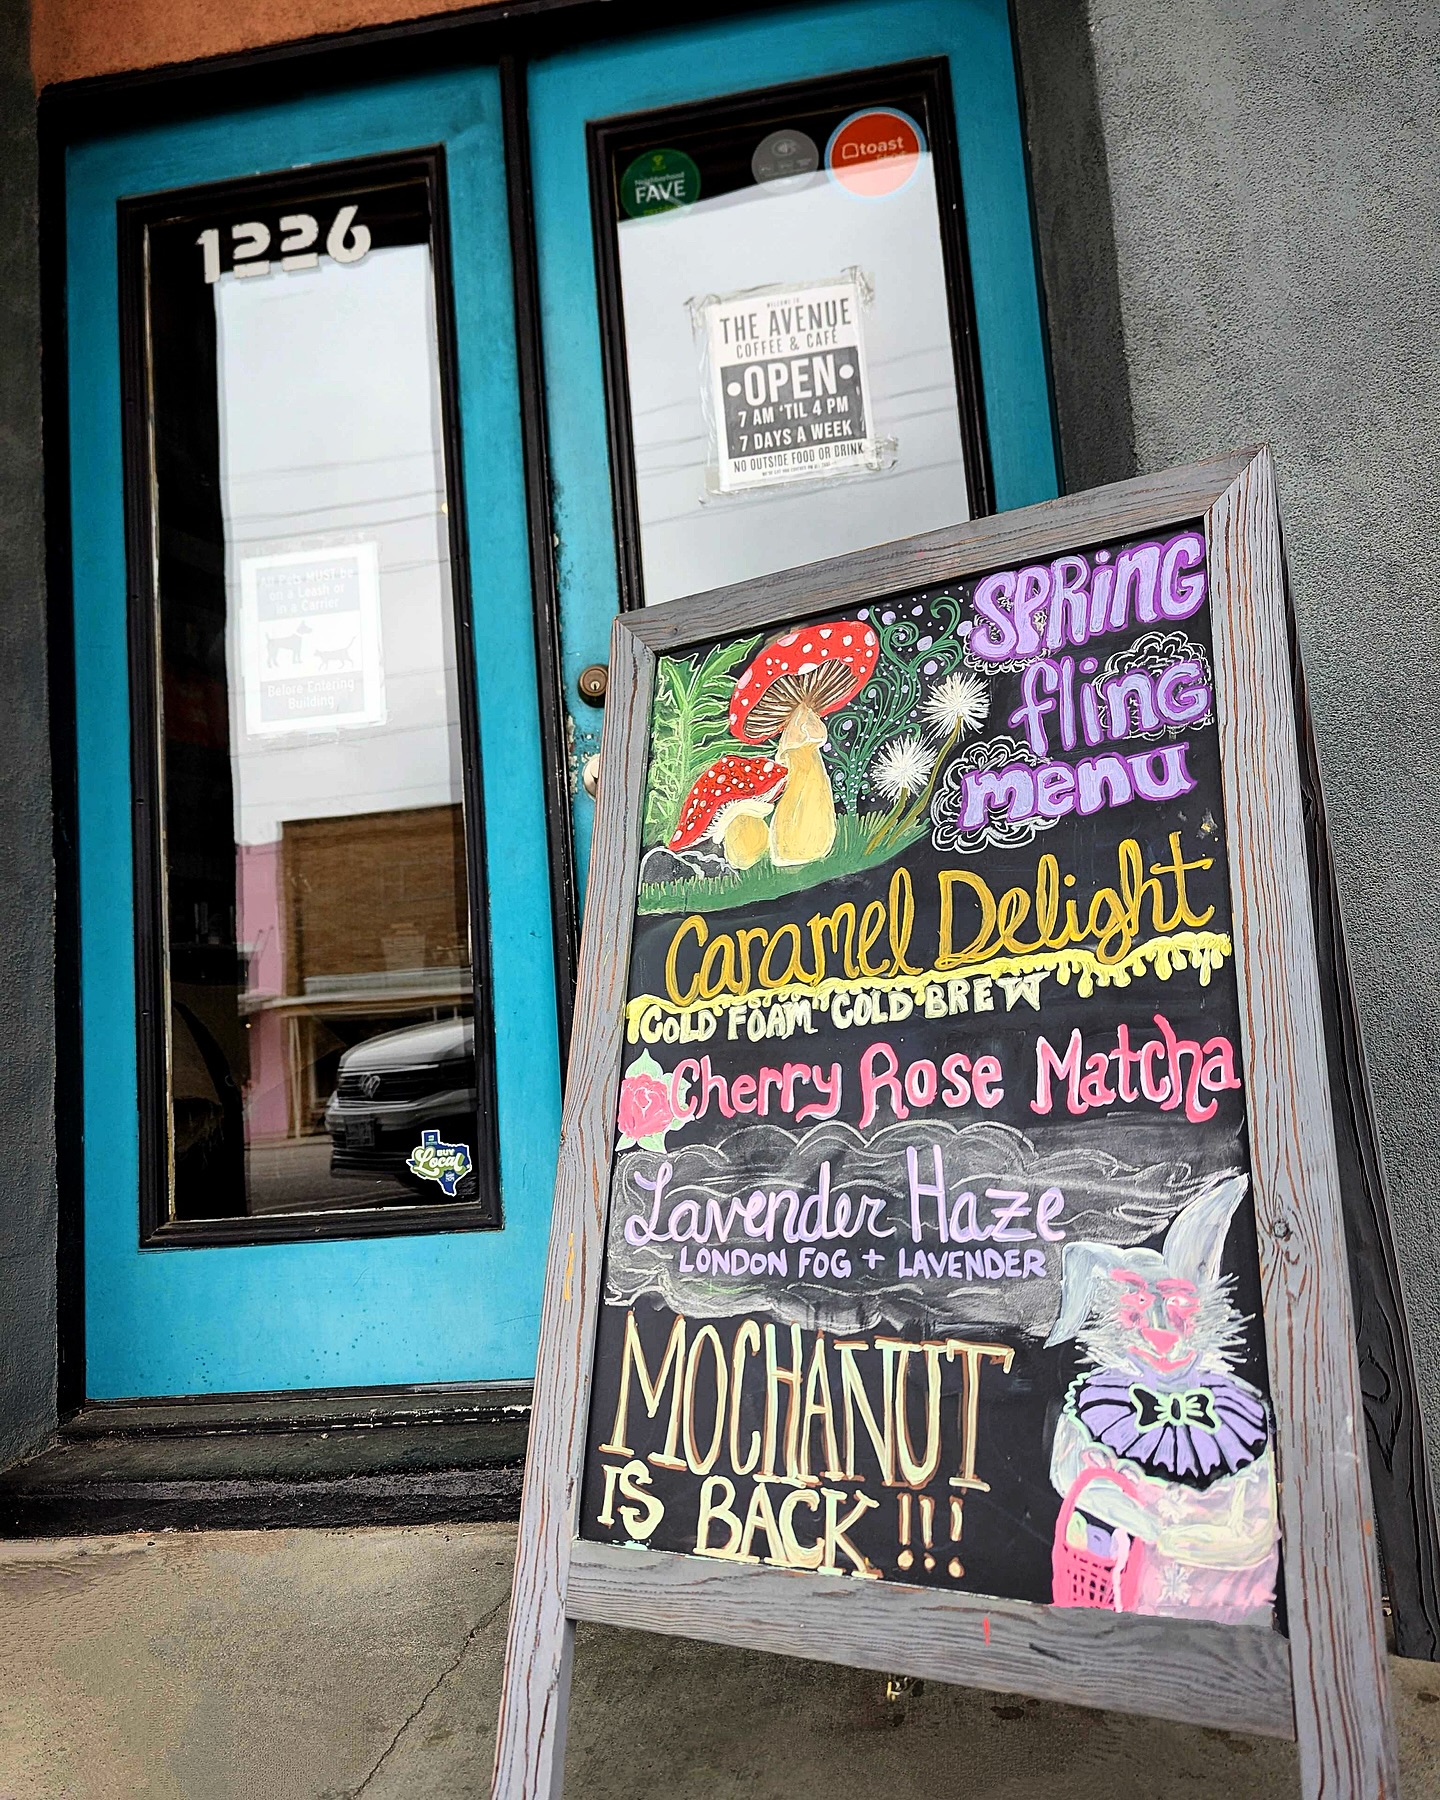 1226
Neighborhood
FAVE
toast
WELCOME TO
THE AVENUE
COFFEE & CAFÉ
•OPEN•
7 AM 'TIL 4 PM
7 DAYS A WEEK
NO OUTSIDE FOOD OR DRINK
All Pets MUST be
on a Leash or
in a Carrier
Before Entering
Building
BUY
Local
SPRING
fling
menu
Caramel Delight
COLD FOAM COLD BREW
Cherry Rose Matcha
Lavender Haze
LONDON FOG + LAVENDER
MOCHANUT
IS BACK !!!